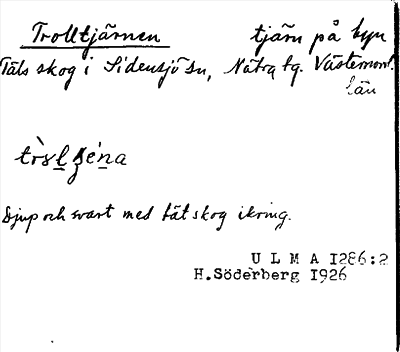 Trolltjärnen tjärn på byn
Täls skog i Sidensjö sn, Nätra tg. Västernorrl.
län
Djup och svart med tät skog ikring.
U L M A 1286:2
H.Söderberg 1926